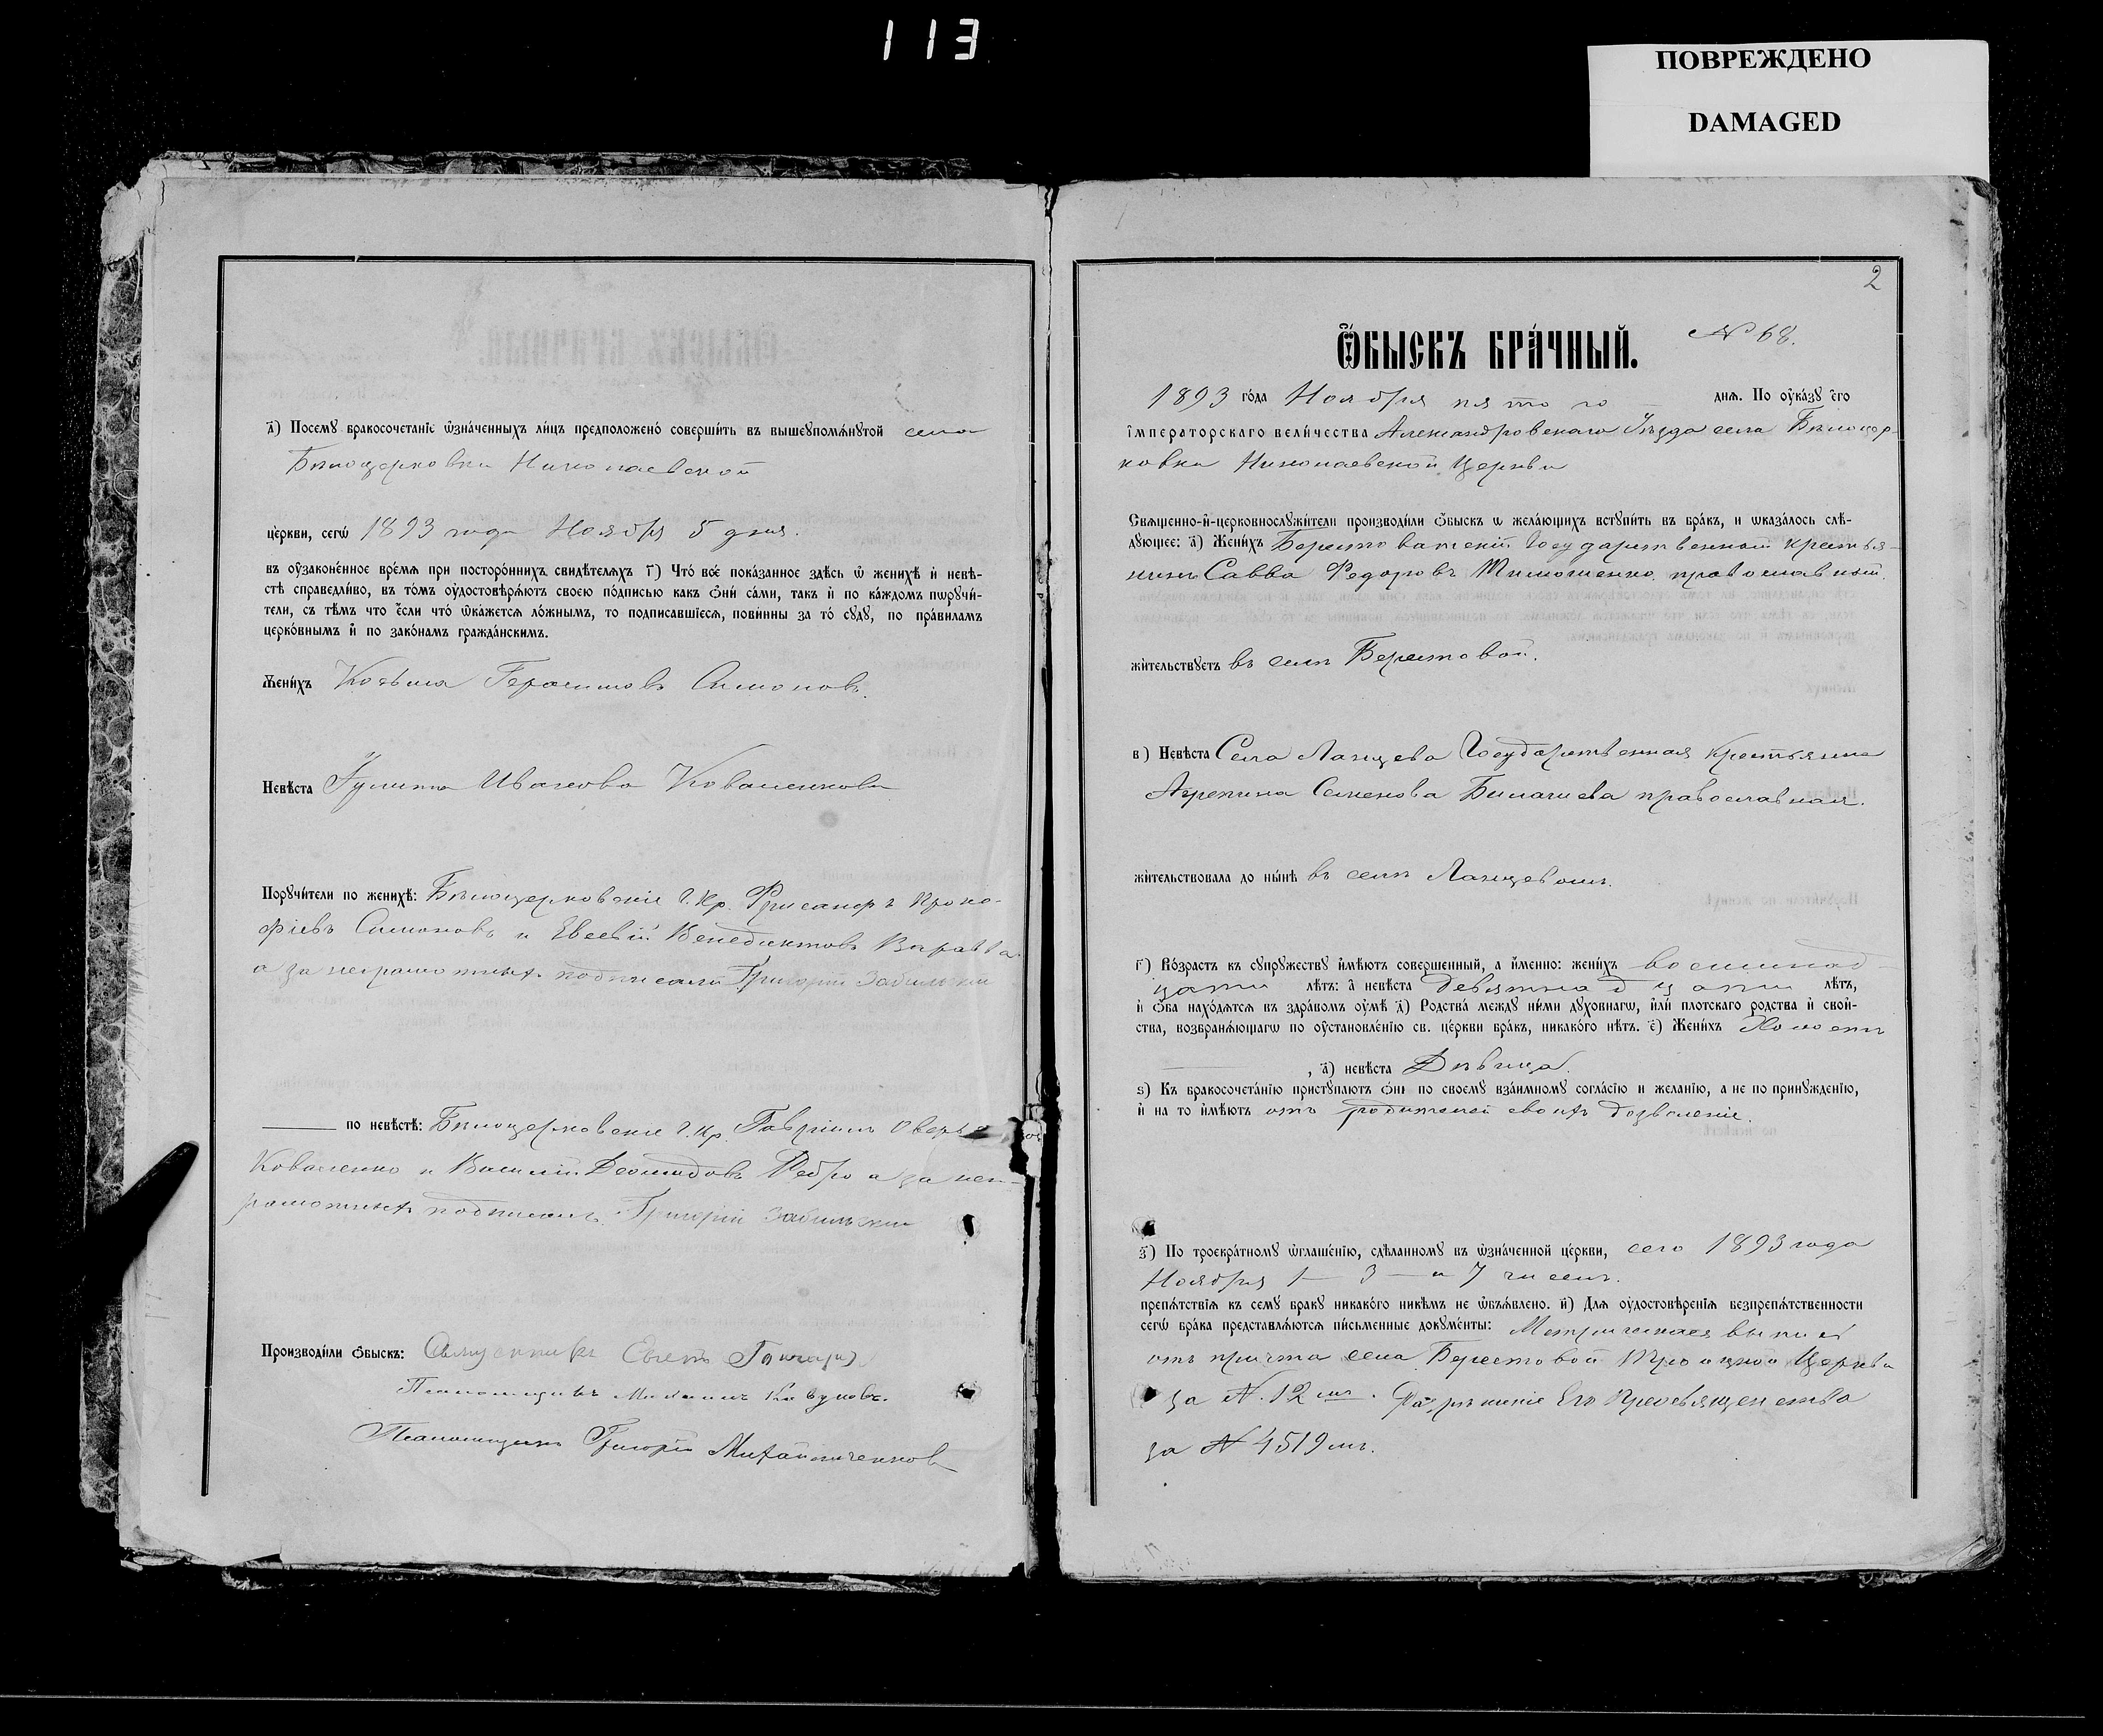 113
ПОВРЕЖДЕНО
DAMAGED
а҃) Посемꙋ бракосочетанїе ѡзна́ченныхъ ли́цъ предположено̀ соверши́ть въ вышеꙋпомѧ́нꙋтой села
Бѣлоцерковки Николаевской
це́ркви, сегѡ̀ 1893 года Ноября 5 дня.
въ оу҆зако́ненное вре́мѧ при посторо́ннихъ свидѣ́телѧхъ г҃) Что́ всѐ пока́занное здѣ́сь ѡ҆ женихѣ̀ и҆ невѣ́-
стѣ справедли́во, въ то́мъ оу҆достовѣрѧ́ютъ своею по́дписью какъ ѻ҆ни́ са́ми, такъ и҆ по ка́ждомъ пѡрꙋчи́-
тели, съ тѣ́мъ что є҆́сли что́ ѡ҆ка́жетсѧ ло́жнымъ, то подписавшїесѧ, пови́нны за то́ сꙋдꙋ̀, по пра́виламъ
церко́внымъ и҆ по зако́намъ гражда́нскимъ.
Жени́хъ Козьма Герасимовъ Симоновъ.
Невѣ́ста Іулита Иванова Коваленкова
Порꙋчи́тели по женихѣ̀: Бѣлоцерковскіе Г. Кр. Проко-
фіевъ Симоновъ и Евсевій Венедиктовъ Варавва
а за неграмотныхъ подписалъ Григорій
по невѣ́стѣ: Бѣлоцерковскіе Г. Кр. Гавріилъ
Коваленко и Василій Деомидовъ Ребро а за нег-
рамотныхъ подписалъ Григорій
Производи́ли ѻ҆́быскъ: Священникъ
Псаломщикъ Михаилъ
Псаломщикъ Григорій Михайличенковъ
2
Ѻ҆́быскъ бра́чный. № 68.
1893 го́да Ноября пятого дня. По оу҆ка́зꙋ є҆гѡ̀
і҆мператорскаго вели́чества Александровскаго Уѣзда села Бѣлоцер-
ковки Николаевской Церкви
Свѧщенно-и҆-церковнослꙋжи́тели производи́ли ѻ҆́быскъ ѡ жела́ющихъ встꙋпи́ть въ бра́къ, и ѡказа́лось слѣ́-
дꙋющее: а҃) Жени́хъ Берестоватскій Государственный крестья-
нинъ Савва Федоровъ Тимошенко православный.
жи́тельствꙋетъ въ селѣ Берестовой.
в) Невѣ́ста Села Ланцева Государственная крестьянка
Агрепина Семенова Билашева православная.
жи́тельствовала до ны́нѣ въ селѣ Ланцевомъ.
г҃) Во́зрастъ къ сꙋпрꙋжествꙋ и҆мѣ́ютъ соверше́нный, а и҆́менно: жени́хъ восемнад
цати лѣ́тъ: а҆ невѣ́ста девятнадцати лѣ́тъ,
и҆ ѻ҆́ба нахо́дѧтсѧ въ здра́вомъ оу҆мѣ̀ д҃) Родства̀ междꙋ ни́ми дꙋхо́внагѡ, и҆ли́ пло́тскаго родства и҆ свой-
ства, возбранѧ́ющагѡ по оу҆становле́нїю св. це́ркви бра́къ, никако́го нѣ́тъ. є҃) Жени́хъ Холостъ
, а҃) невѣ́ста Дѣвица.
ѕ) Къ бракосочета́нїю пристꙋпа́ютъ ѻ҆нѝ по своемꙋ̀ вза́имномꙋ согла́сїю и жела́нїю, а не по принꙋжде́нїю,
и҆ на то и҆мѣ́ютъ отъ родителей своихъ дозволеніе.
з҃) По троекра́тномꙋ ѡ҆глаше́нїю, сдѣ́ланномꙋ въ ѡ҆зна́ченной це́ркви, сего 1893 года
Ноября 1 — 3 — и 7 числъ.
препѧ́тствїѧ къ семꙋ̀ бракꙋ никако́го никѣ́мъ не ѡ҆бъѧ́влено. и҃) Длѧ оу҆достовѣ́ренїѧ безпрепѧ́тственности
сегѡ̀ бра́ка представлѧ́ютсѧ пи́сьменные докꙋме́нты: Метрическая выпись
отъ причта села Берестовой Троицкой Церкви
за № 12 мъ. Разрѣшеніе Его Преосвященства
за № 4519 мъ.